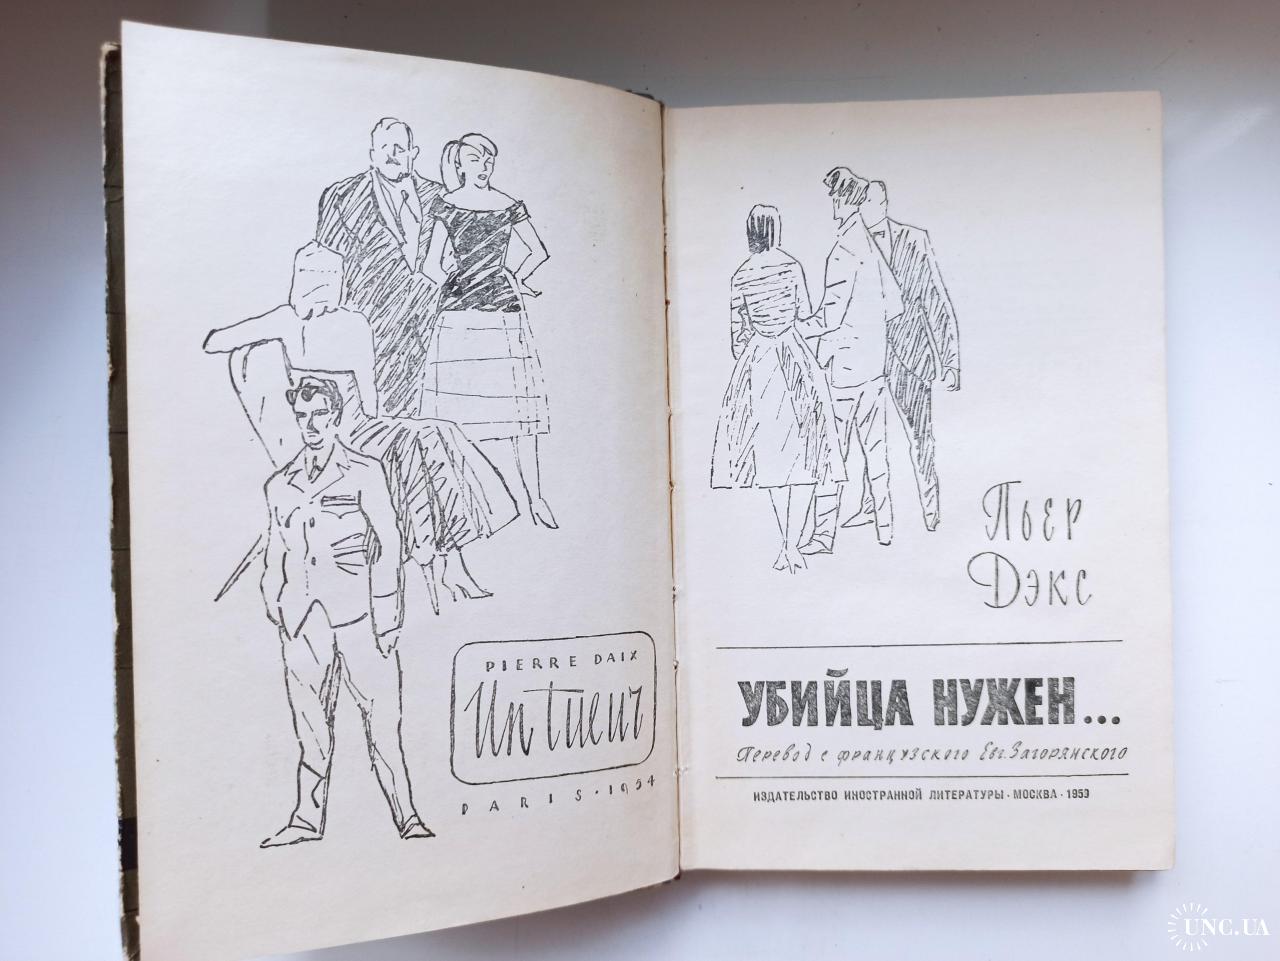 PIERRE DAIX
Un tueur
PARIS · 1954
Пьер
Дэкс
УБИЙЦА НУЖЕН...
Перевод с французского Евг. Загорянского
ИЗДАТЕЛЬСТВО ИНОСТРАННОЙ ЛИТЕРАТУРЫ · МОСКВА · 1959
UNC.UA